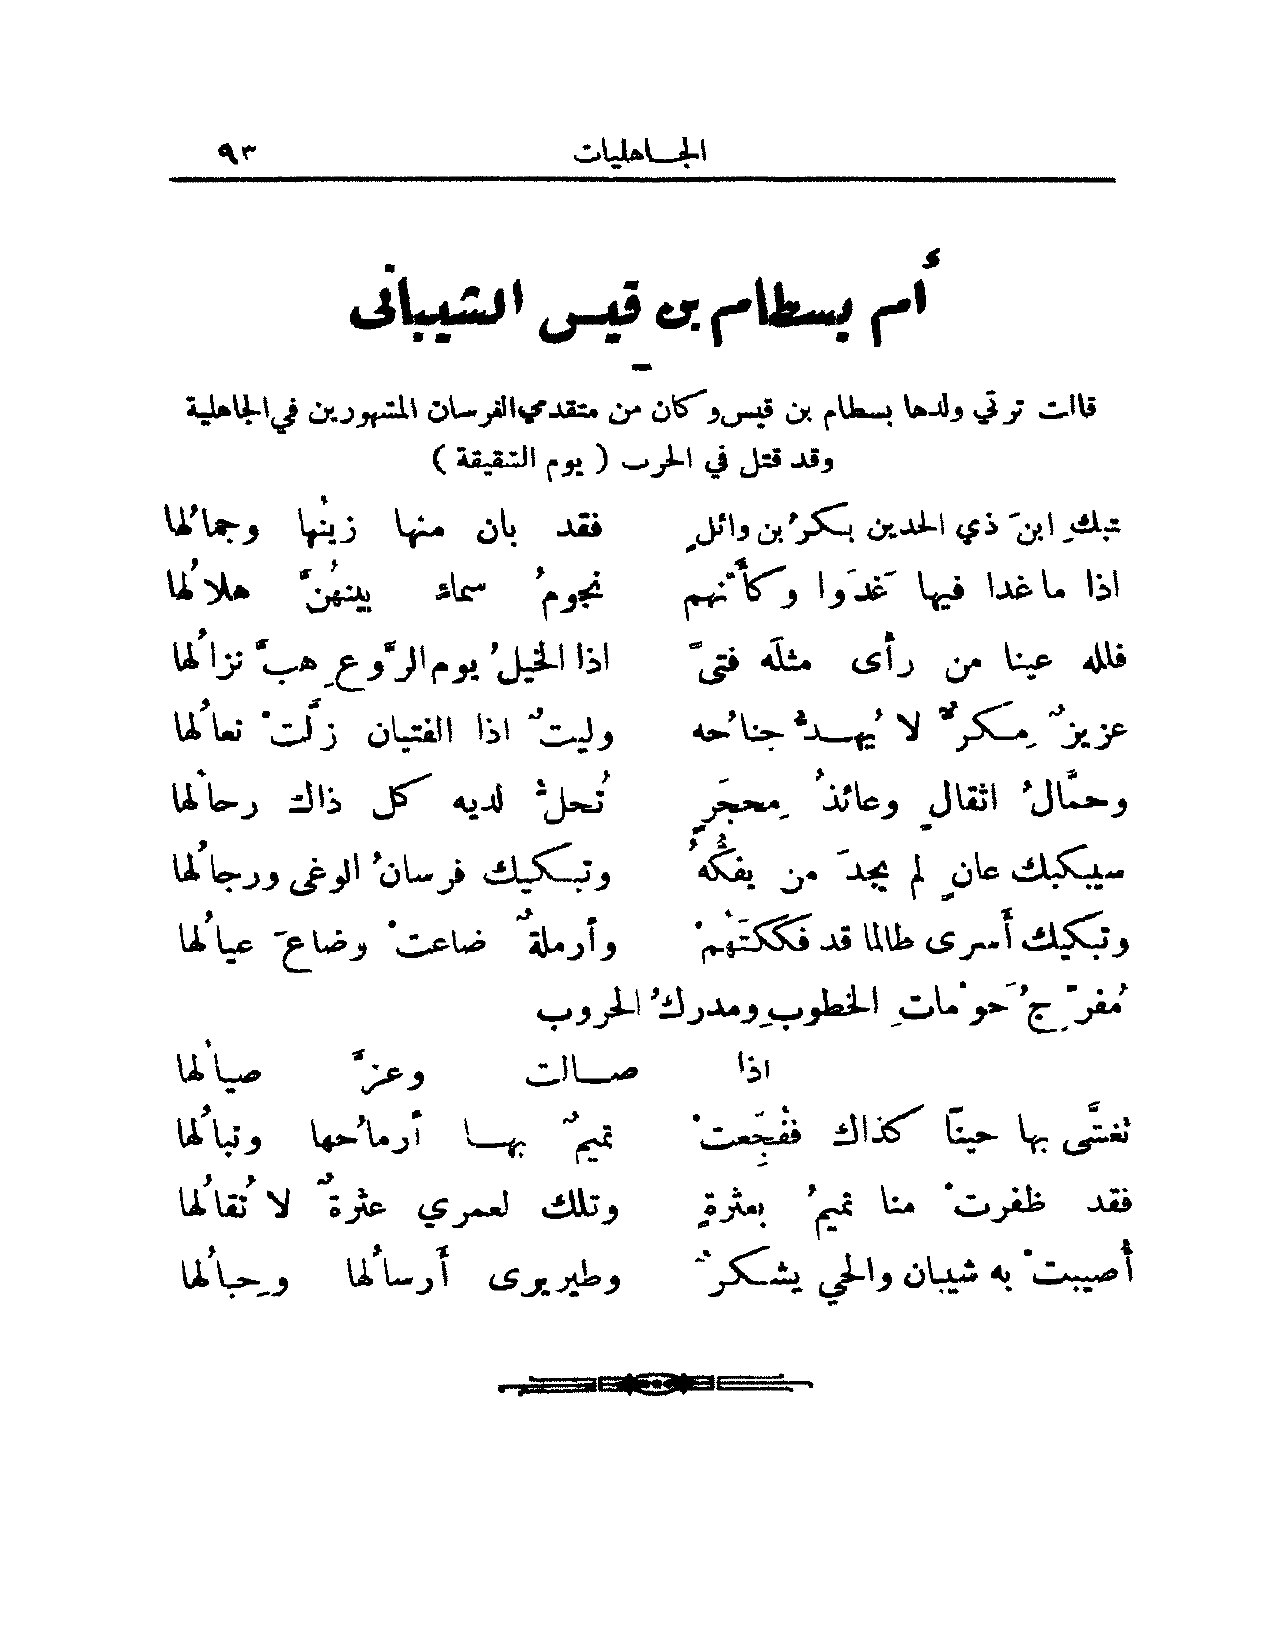 الجاهليات ٩٣
أم بسطام بن قيس الشيباني
قالت ترثي ولدها بسطام بن قيس وكان من متقدمي الفرسان المشهورين في الجاهلية
وقد قتل في الحرب ( يوم الشقيقة )
تبكِ ابنَ ذي الجدين بكرُ بن وائلٍ فقد بان منها زينُها وجمالُها
اذا ما غدا فيها غَدَوا وكأنَّهم نجومُ سماء بينهُنَّ هلالُها
فلله عينا من رأى مثلَه فتىً اذا الخيلُ يوم الرَّوعِ هبَّ نزالُها
عزيزٌ مِكرٌّ لا يُهدُّ جناحُه وليثٌ اذا الفتيان زلَّتْ نعالُها
وحمَّالُ اثقالٍ وعائذُ مِحجَرٍ تُحلُّ لديه كل ذاك رحالُها
سيبكيك عانٍ لم يجدَ من يفكُّهُ وتبكيك فرسانُ الوغى ورجالُها
وتبكيك أسرى طالما قد فككتَهُمْ وأرملةٌ ضاعتْ وضاعَ عيالُها
مُفرّجُ حَومْاتِ الخطوبِ ومدركُ الحروب
اذا صالت وعزَّ صيالُها
تغشَّى بها حينًا كذاك ففُجِّعتْ تميمٌ بها أرماحُها ونبالُها
فقد ظفرتْ منا تميمُ بعثرةٍ وتلك لعمري عثرةٌ لا تُقالُها
أصيبتْ به شيبان والحي يشكرٌ وطير يرى أرسالُها وحِبالُها